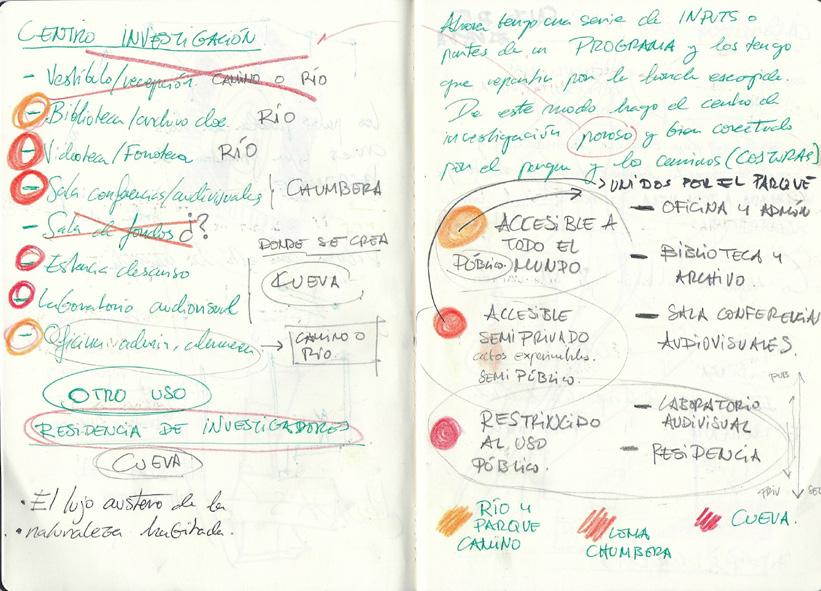 CENTRO INVESTIGACIÓN
- Vestíbulo/recepción. CAMINO O RÍO
- Biblioteca/archivo doc. RÍO
- Videoteca/Fonoteca RÍO
- Sala conferencias/audiovisuales CHUMBERA
- Sala de fondos ¿?
DONDE SE CREA
- Estancia descanso
CUEVA
- Laboratorio audiovisual
- Oficina, admin, → CAMINO O RÍO
OTRO USO
RESIDENCIA DE INVESTIGADORES
CUEVA
• El lujo austero de la
• naturaleza habitada.
Ahora tengo una serie de INPUTS o
partes de un PROGRAMA y los tengo
que repartir por la banda escogida.
De este modo hago el centro de
investigación poroso y bien conectado
por el parque y los caminos (COSTURAS)
UNIDOS POR EL PARQUE
ACCESIBLE A
TODO EL
PÚBLICO/MUNDO
- OFICINA Y ADMÓN
- BIBLIOTECA Y
ARCHIVO.
ACCESIBLE
SEMIPRIVADO
SEMIPÚBLICO.
- SALA CONFERENCIAS
AUDIOVISUALES.
PUB
RESTRINGIDO
AL USO
PÚBLICO.
- LABORATORIO
AUDIVISUAL
- RESIDENCIA
PRIV
RÍO Y
PARQUE
CAMINO
LOMA
CHUMBERA
CUEVA.